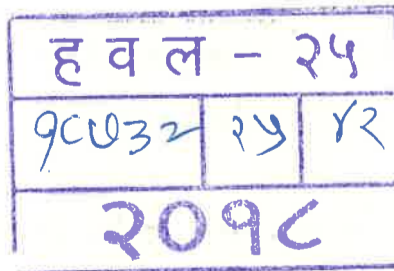 हवल - २५
१८७३२ २५ ४२
२०१८